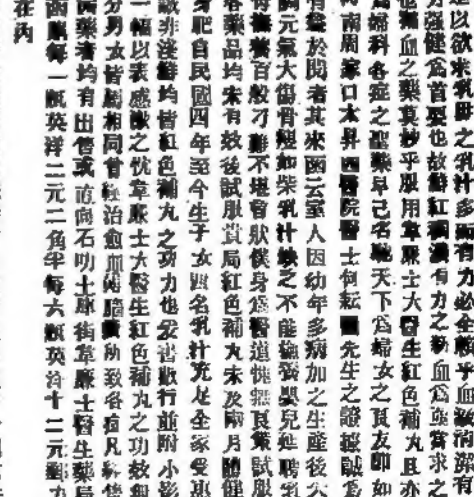 是以欲求乳之汁多而有力必全賴乎血液清潔有
力強健為首要也故鮮紅濃有力之新血為當求之
也補血之藥莫妙乎服用韋廉士大醫生紅色補丸且亦
為婦科各症之聖藥早已名馳天下為婦女之良友即如
河南周家口大昇西醫院醫士何耘先生之證據誠為
有益於閱者其來函云室人因幼年多病加之生產後
元氣大傷骨瘦如柴乳汁缺之不能撫育嬰兒延聘乳
百般才難不堪言狀僕身為醫道愧無良策試服
各藥品均未有效後試服貴局紅色補丸未及兩月體健
身肥自民國四年至今生子女四名乳汁充足全家受惠
誠非淺鮮均皆紅色補丸之功力也爰書數行並附小影
一幅以表感激之忱韋廉士大醫生紅色補丸之功效無
分男女皆屬相同曾經治愈血所致各症凡經售
西藥者均有出售或直向石叻士庫街韋廉士醫生藥局
函購每一瓶英洋一元二角半每六瓶英洋十二元郵力
在內